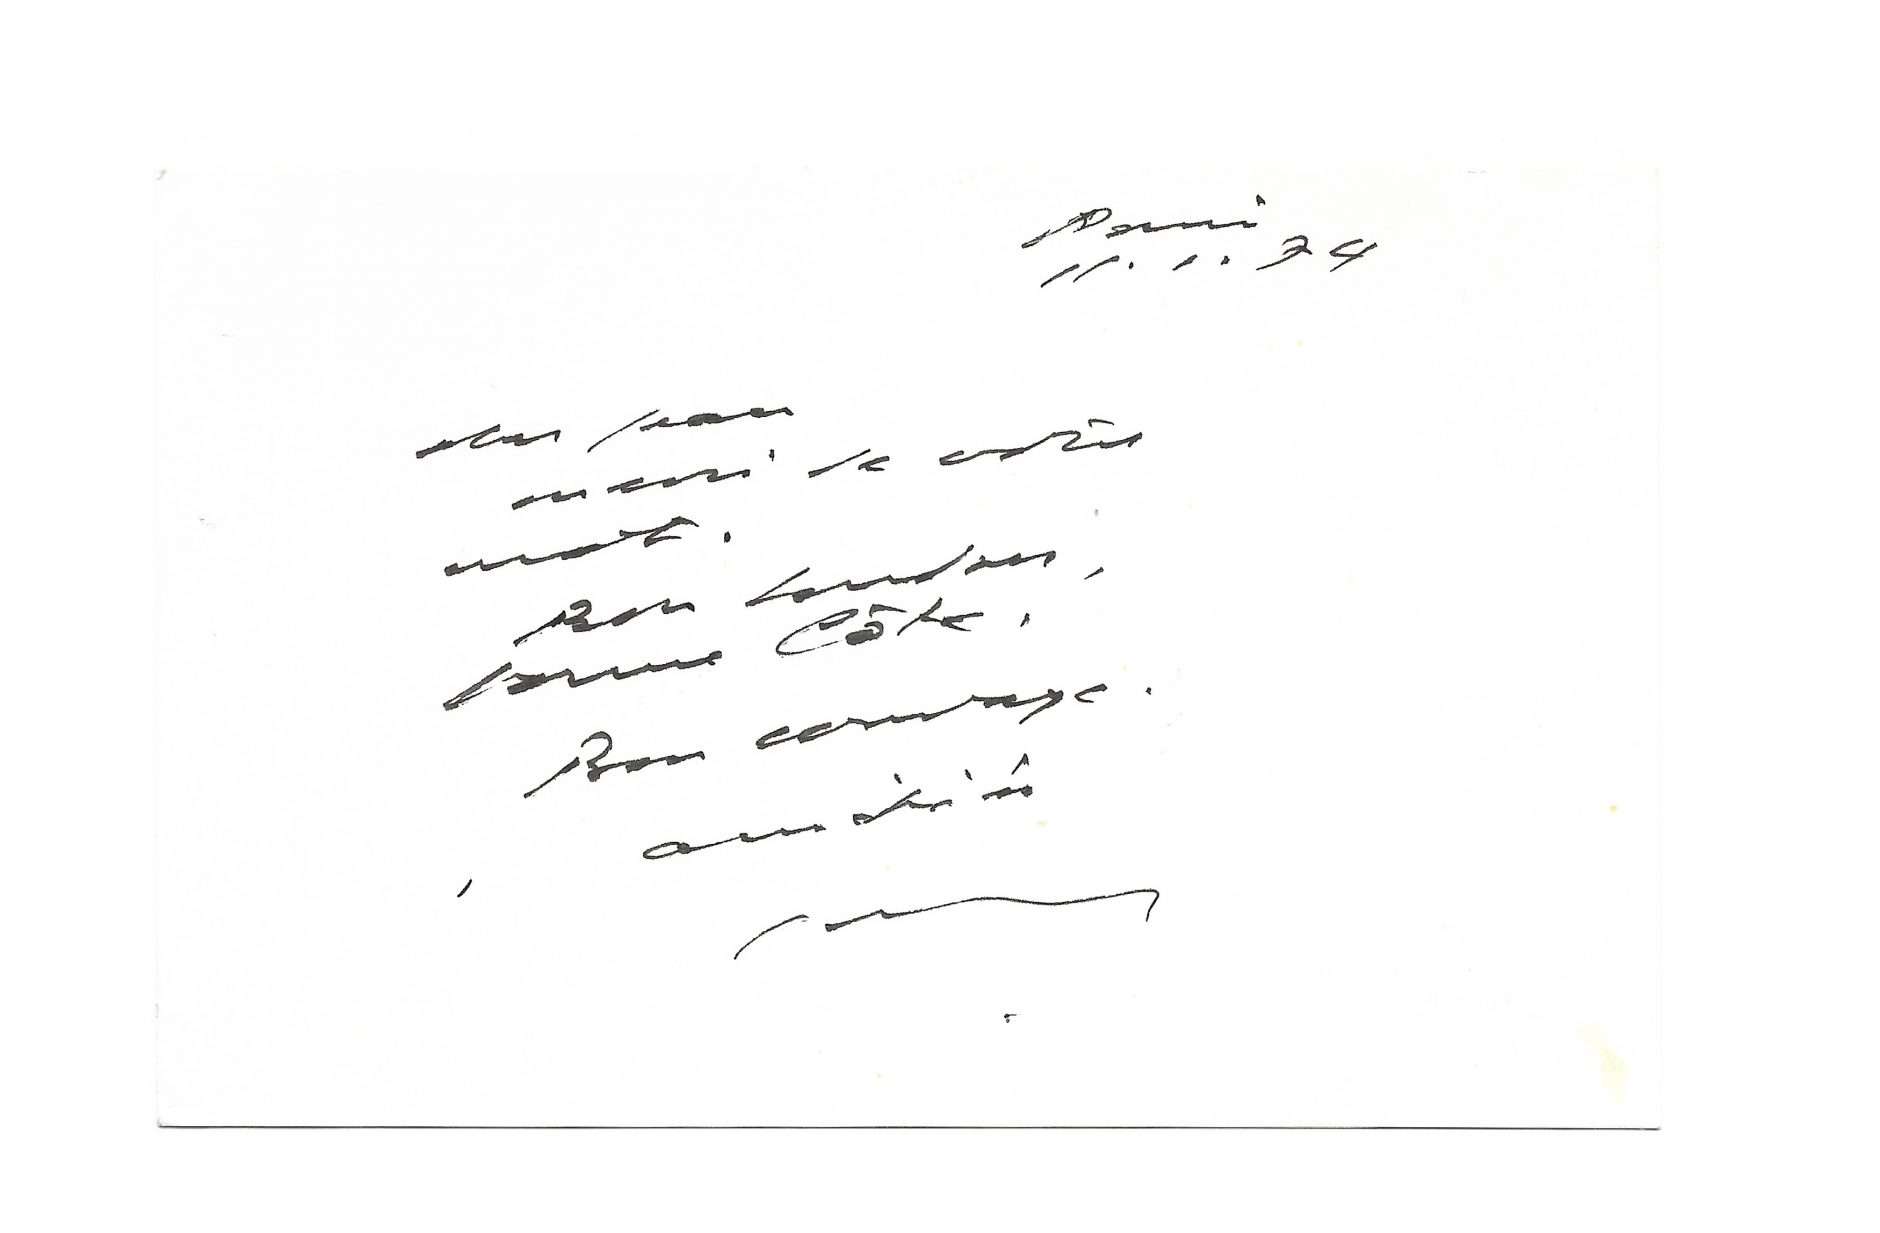 Paris
11.1.74
cher Jean
merci de votre
mot.
Bon Londres,
bonne Côte.
Bon courage.
amitiés